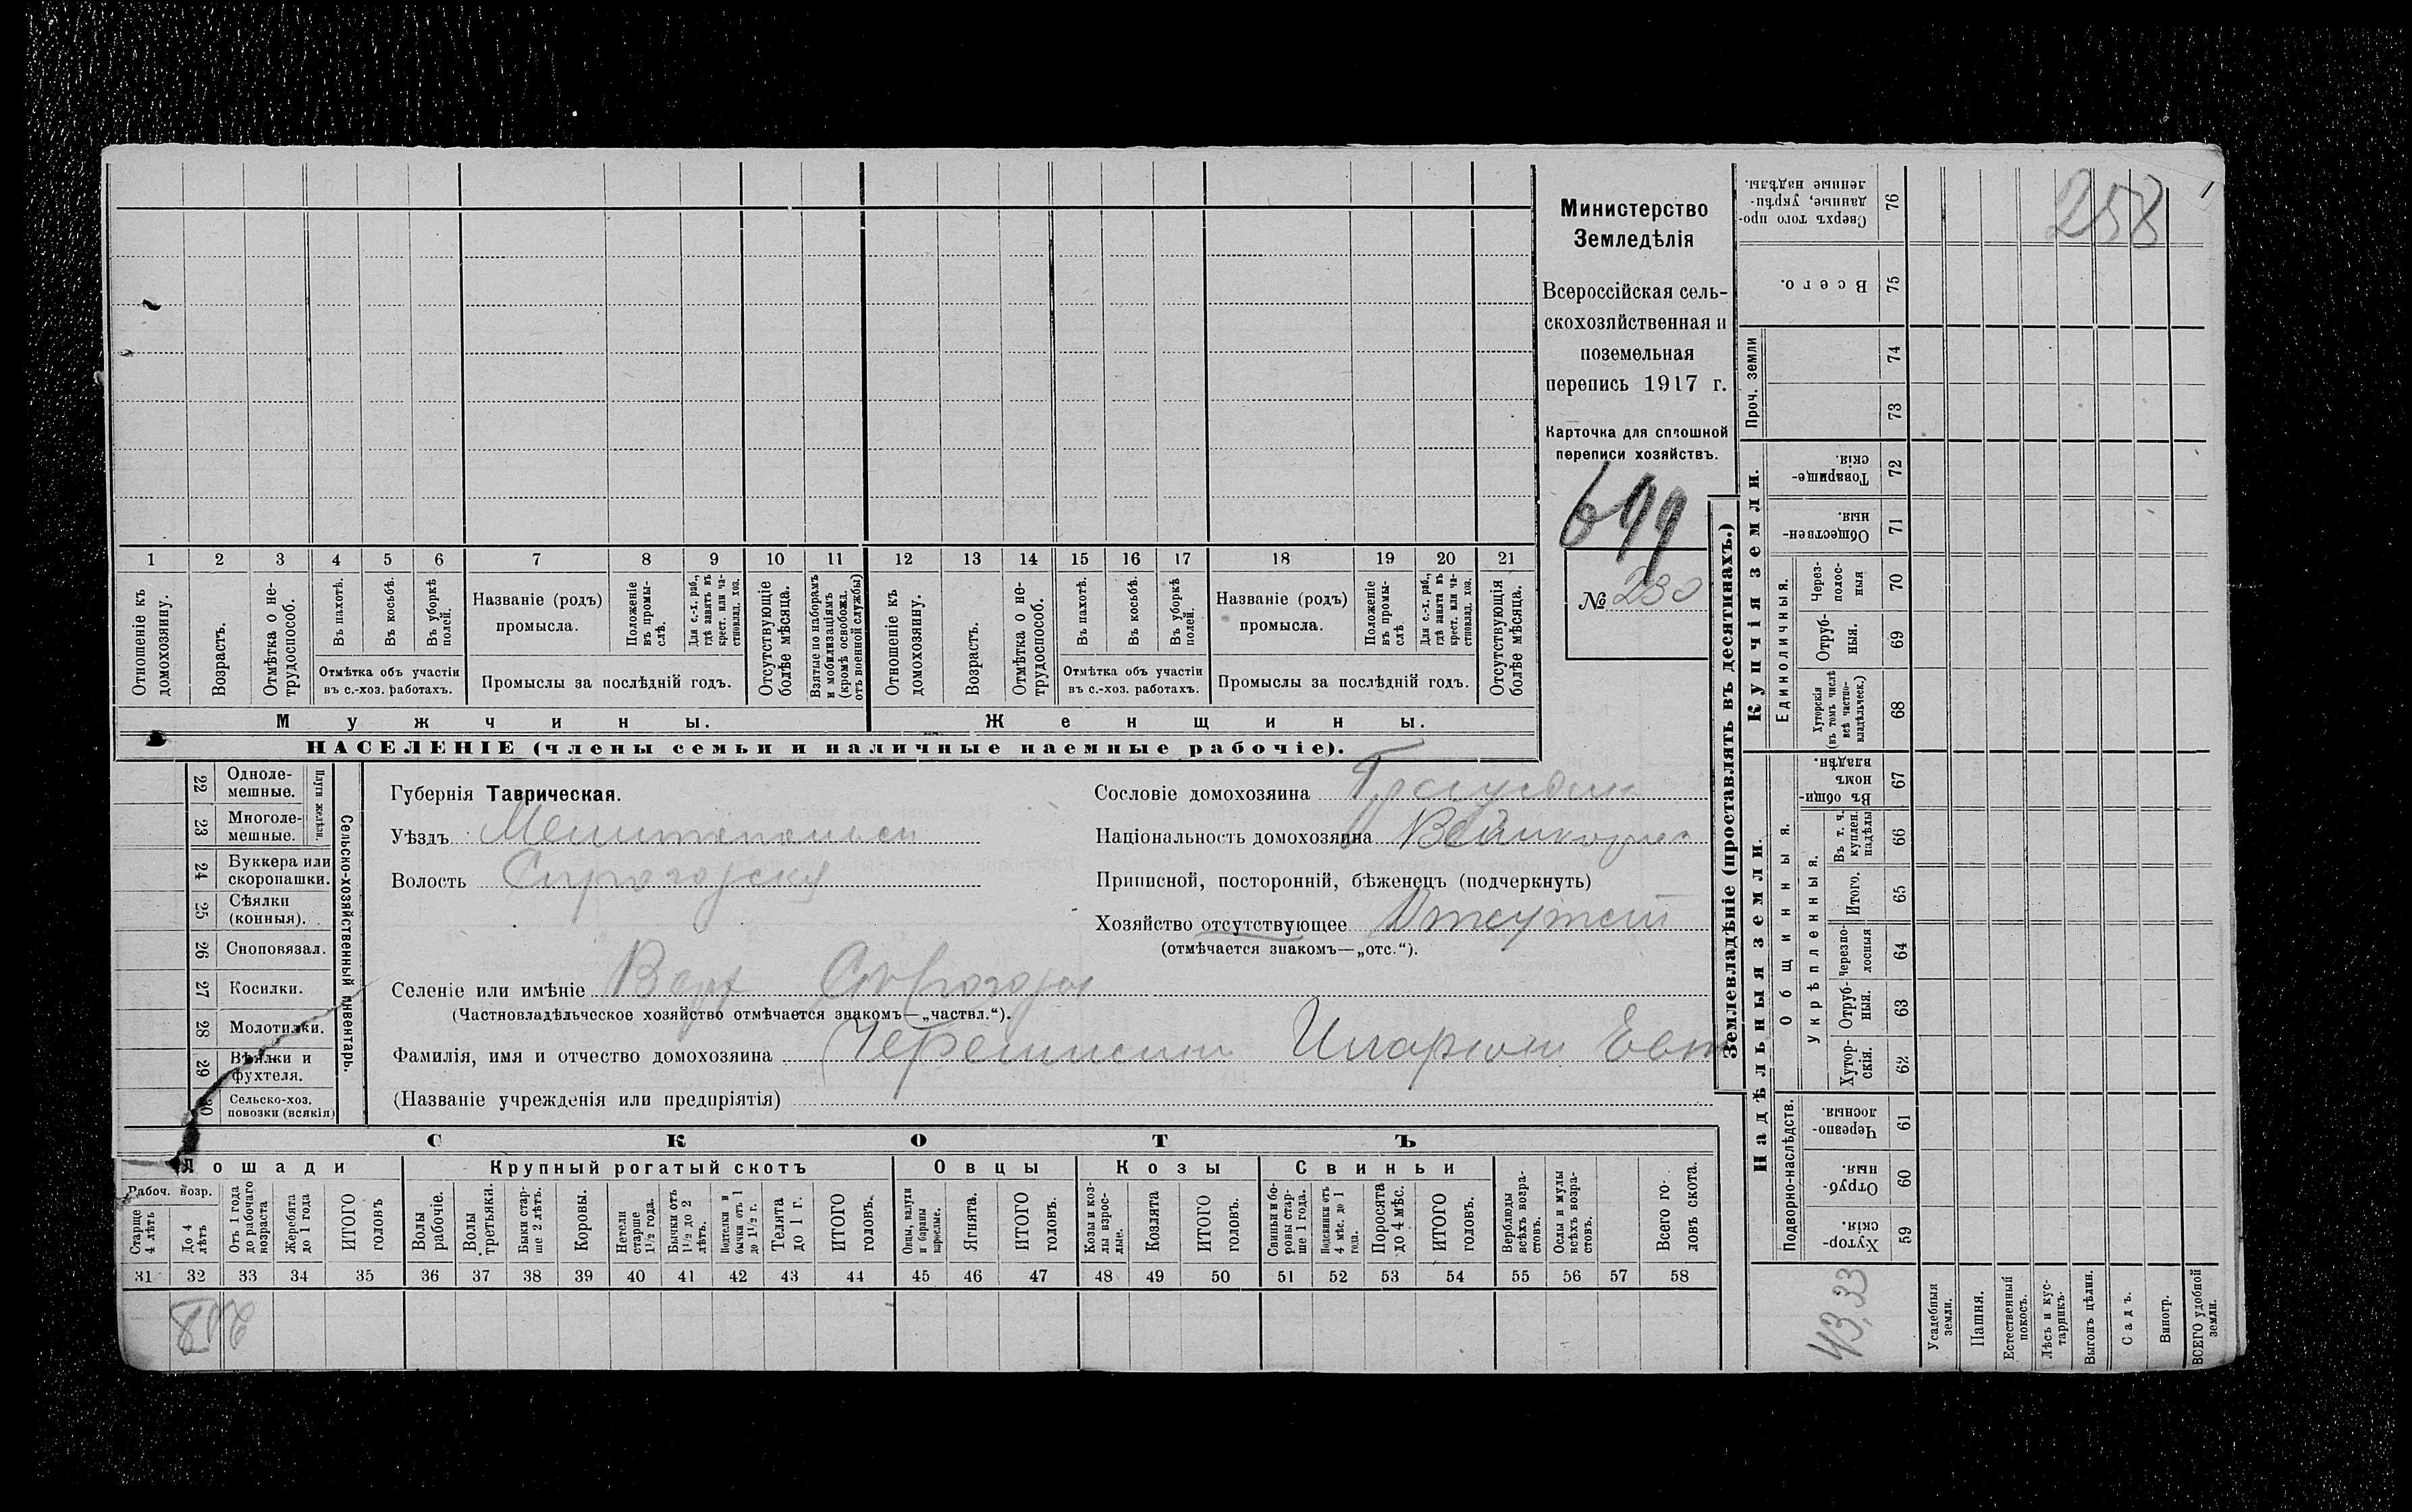 Министерство
Земледѣлія
Всероссійская сель-
скохозяйственная и
поземельная
перепись 1917 г.
Карточка для сплошной
переписи хозяйствъ.
699
№ 230
258
1 2 3 4 5 6 7 8 9 10 11 12 13 14 15 16 17 18 19 20 21
Отношеніе къ домохозяину.
Возрастъ.
Отмѣтка о не-трудоспособ.
Въ пахотѣ.
Въ косьбѣ.
Въ уборкѣ полей.
Отмѣтка объ участіи
въ с.-хоз. работахъ.
Названіе (родъ)
промысла.
Положеніе въ промы-слѣ.
Для с.-х. раб., гдѣ занятъ въ крест. или ча-стновлад. хоз.
Промыслы за послѣдній годъ.
Отсутствующіе болѣе мѣсяца.
Взятые по наборамъ и мобилизаціямъ (кромѣ освобожд. отъ военной службы)
Отношеніе къ домохозяину.
Возрастъ.
Отмѣтка о не-трудоспособ.
Въ пахотѣ.
Въ косьбѣ.
Въ уборкѣ полей.
Отмѣтка объ участіи
въ с.-хоз. работахъ.
Названіе (родъ)
промысла.
Положеніе въ промы-слѣ
Для с.-х. раб., гдѣ занята въ крест. или ча-стновлад. хоз.
Промыслы за послѣдній годъ.
Отсутствующія болѣе мѣсяца.
Мужчины.
Женщины.
НАСЕЛЕНІЕ (члены семьи и наличные наемные рабочіе).
22 Одноле-мешные.
23 Многоле-мешные.
Плуги желѣзн.
24 Буккера или скоропашки.
25 Сѣялки (конныя).
26 Сноповязал.
27 Косилки.
28 Молотилки.
29 Вѣялки и фухтеля.
30 Сельско-хоз. повозки (всякія)
Сельско-хозяйственный инвентарь.
Губернія Таврическая.
Уѣздъ Мелитопольск
Волость Сирогозская
Сословіе домохозяина
Національность домохозяина Великорос
Приписной, посторонній, бѣженецъ (подчеркнуть)
Хозяйство отсутствующее Отсутст
(отмѣчается знакомъ—„отс.“).
Селеніе или имѣніе Верх Сирогозы
(Частновладѣльческое хозяйство отмѣчается знакомъ—„частвл.“).
Фамилія, имя и отчество домохозяина Иларион Евт
(Названіе учрежденія или предпріятія)
СКОТЪ
Лошади
Крупный рогатый скотъ
Овцы
Козы
Свиньи
Рабоч. возр.
Старше 4 лѣтъ
До 4 лѣтъ
Отъ 1 года до рабочаго возраста
Жеребята до 1 года
ИТОГО головъ
Волы рабочіе.
Волы третьяки.
Быки стар-ше 2 лѣтъ.
Коровы.
Нетели старше 1½ года.
Бычки отъ 1½ до 2 лѣтъ.
Подтелки и бычки отъ 1 до 1½ г.
Телята до 1 г.
ИТОГО головъ.
Овцы, валухи и бараны взрослые.
Ягнята.
ИТОГО головъ.
Козы и коз-лы взрос-лые.
Козлята
ИТОГО головъ.
Свиньи и бо-ровы стар-ше 1 года.
Подсвинки отъ 4 мѣс. до 1 года.
Поросята до 4 мѣс.
ИТОГО головъ.
Верблюды всѣхъ возра-стовъ.
Ослы и мулы всѣхъ возра-стовъ.
Всего го-ловъ скота.
31 32 33 34 35 36 37 38 39 40 41 42 43 44 45 46 47 48 49 50 51 52 53 54 55 56 57 58
258
Землевладѣніе (проставлять въ десятинахъ.)
Купчія земли.
Надѣльныя земли.
Сверхъ того про-данные, укрѣп-ленные надѣлы. 76
Всего. 75
Проч. земли
74
73
Товарище-скія. 72
Обществен-ныя. 71
Единоличныя.
Через-полос-ныя 70
Отруб-ныя. 69
Хуторскія (въ томъ числѣ всѣ частно-владѣльческ.) 68
Общинныя.
Въ общи-номъ владѣн. 67
Укрѣпленныя.
Въ т. ч. куплен. надѣлы 66
Итого. 65
Черезпо-лосныя 64
Отруб-ныя. 63
Хутор-скія. 62
Подворно-наслѣдств.
Черезпо-лосныя. 61
Отруб-ныя. 60
Хутор-скія. 59
43,33
Усадебныя земли.
Пашня.
Естественный покосъ.
Лѣсъ и кус-тарникъ.
Выгонъ цѣлин.
Садъ.
Виногр.
ВСЕГО удобной земли.